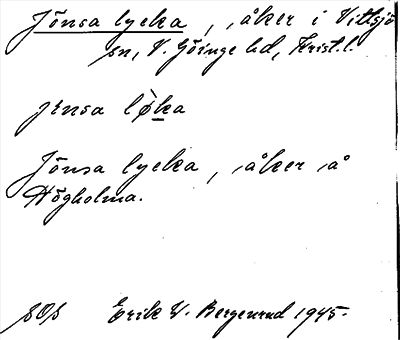 Jönsa lycka, åker i Vittsjö
sn, V. Göinge hd, Krist. l.
jensa løka
Jönsa lycka, åker å
Högholma.
Erik W. Bergenrud 1945.